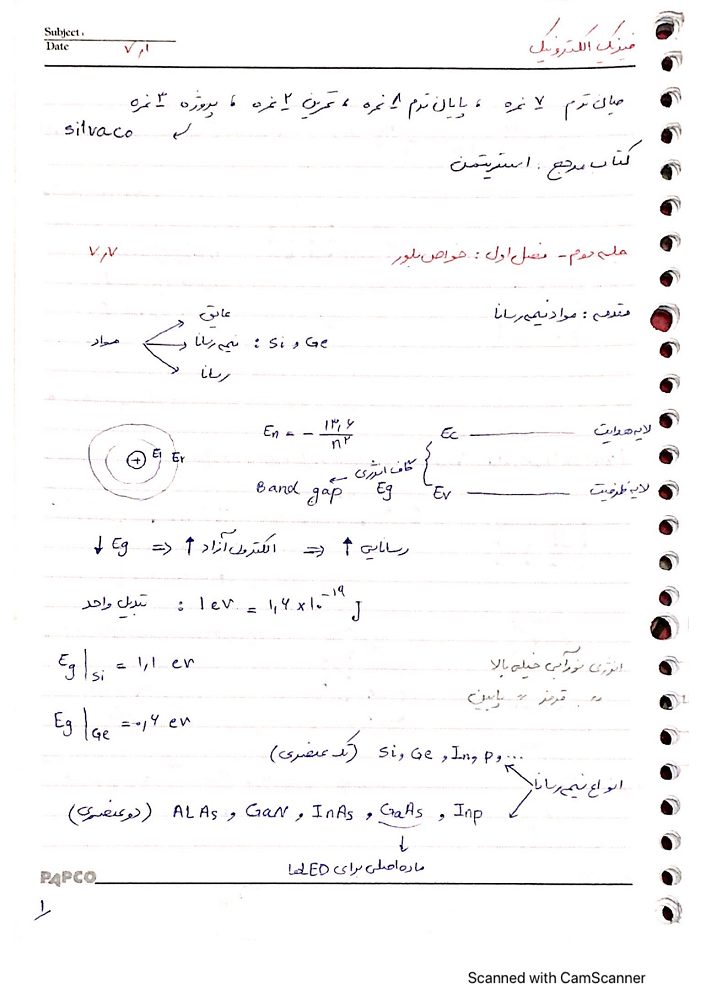 Subject:
Date ۷٫۱
فیزیک الکترونیک
میان ترم ۷ نمره ، پایان ترم ۸ نمره ، تمرین ۲ نمره ، پروژه ۳ نمره
silvaco
کتاب مرجع . استریتمن
جلسه دوم - فصل اول : خواص بلور ۷٫۷
مقدمه : مواد نیمه رسانا
مواد
عایق
نیمه رسانا : Si و Ge
رسانا
E۱ E۲
En = - ۱۳٫۶ / n۲
Ec لایه هدایت
گاف انرژی
Band gap Eg
Ev لایه ظرفیت
↓ Eg => ↑ الکترون آزاد => ↑ رسانایی
تبدیل واحد : 1 ev = ۱٫۶ × ۱۰⁻۱۹ J
Eg|Si = ۱٫۱ ev
انرژی نور آبی خیلی بالا
〃 قرمز 〃 پایین
Eg|Ge = ۰٫۶ ev
(تک عنصری) Si, Ge , In, P, ...
انواع نیمه رسانا
(دو عنصری) ALAs , GaN , InAs , GaAs , Inp
ماده اصلی برای LEDها
PAPCO
۱
Scanned with CamScanner